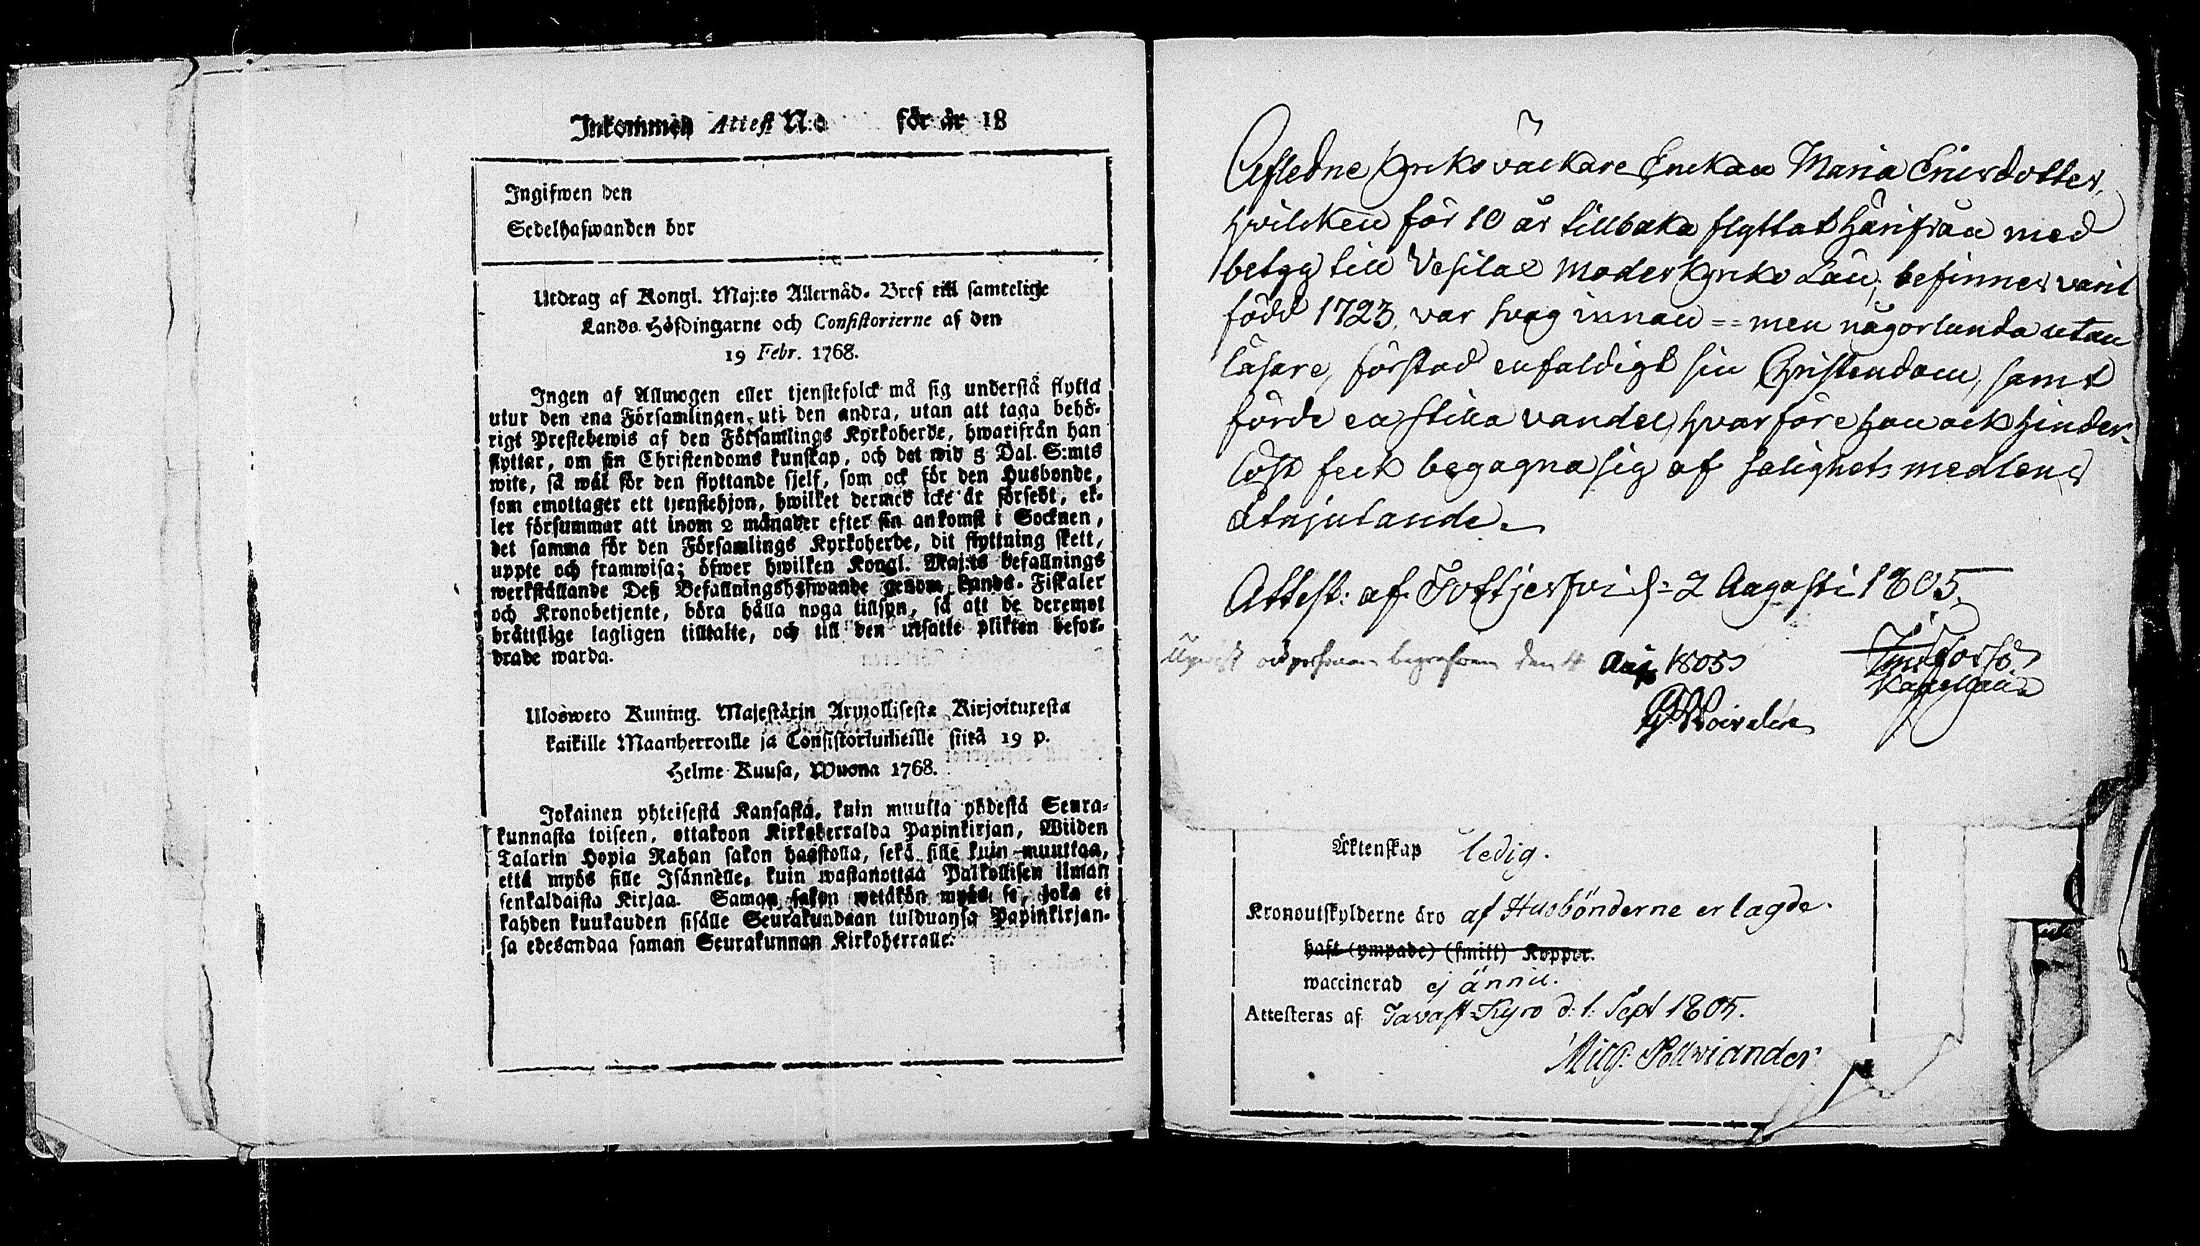 Inkommen Attest N:o för år 18
Ingifwen den
Sedelhafwanden bor
Utdrag af Kongl. Maj:ts Allernåd. Bref till samtelige
Lands Höfdingarne och Consistorierne af den
19 Febr. 1768.
Ingen af Allmogen eller tjenstefolck må sig understå flytta
utur den ena Församlingen uti den andra, utan att taga behö-
rigt Prestebewis af den Församlings Kyrkoherde, hwarifrån han
flyttar, om sin Christendoms kunskap, och det wid 5 Dal. S:mts
wite, så wäl för den flyttande sjelf, som ock för den Husbonde,
som emottager ett tjenstehjon, hwilket dermed icke är försedt, el-
ler försummar att inom 2 månader efter sin ankomst i Socknen,
det samma för den Församlings Kyrkoherde, dit flyttning skett,
uppte och framwisa; öfwer hwilken Kongl. Maj:ts befallnings
werkställande Deß Befallningshafwande genom Lands-Fiskaler
och Kronobetjente, böra hålla noga tillsyn, så att de deremot
bråttslige lagligen tilltalte, och till den utsatte plikten befor-
drade warda.
Uloswero Kuning. Majestätin Armollisesta Kirjoituxesta
kaikille Maanherroille ja Consistoriumeille siitä 19 p.
Helme Kuusa, Wuona 1768.
Jokainen yhteisestä Kansasta, kuin muutta yhdestä Seura-
kunnasta toiseen, ottakoon Kirkoherralda Papinkirjan, Wiiden
Talarin Hopia Rahan sakon haastolla, sekä sille kuin muuttaa,
että myös sille Isännelle, kuin wastanottaa Palkollisen ilman
senkaldaista Kirjaa. Saman sakon wetäkön myös se, joka ei
kahden kuukauden sisälle Seurakundaan tulduansa Papinkirjan-
sa edesandaa saman Seurakunnan Kirkoherralle.
Afledne Kyrkoväckare Enckan Maria Ericsdotter,
hvilcken för 10 år tillbaka flyttat härifrån med
betyg till Vesilax Moderkyrko Lån, befinnes varit
född 1723, var svag innan == men någorlunda utan
läsare, förstod enfaldigt sin Christendom, samt
förde en stilla vandel, hvarföre hon ock hinder-
löst feck begagna sig af salighets medlens
åtnjutande.
Attest: af Tottjerfvi d: 2 Augusti 1805.
begrafwen den 4 Aug 1805
Kapellan
Äktenskap ledig.
Kronoutskylderne äro af Husbönderne erlagde.
haft (ympade) (smitt) Koppor.
waccinerad ej ännu.
Attesteras af Tavast-Kyro d: 1 Sept 1805.